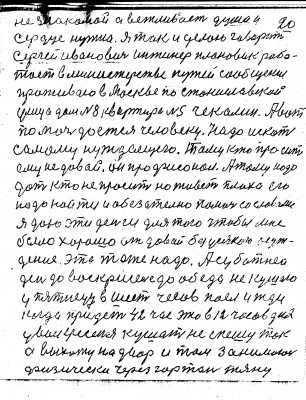 20
не знакомой а ветливает душа и
сердце нужна. Я так и делаю говорит
Сергей иванович инжинер плановик рабо-
тает в министерстве путей сообщения
проживаю в Москве по стопиславской
улица дом N8 квартира N5 Чекалин. А вот
помоч достся человеку. Надо искат
самому нуждающего. Тому кто просит
ему не довай, он профисонал. А тому надо
дат кто не просит но живет плохо его
надо найти и обезателно помоч со словами
я даю эти денги для того чтобы мне
было хорошо отдовай без всякого сужд-
дения. Эта тоже надо. А субатнео
ден до воскрисенее до обеда не кушаю
у пятницу в шест часов поел и жди
когда придет 42 час это в 12 часов дня
у воскресеня кушат не спешу так
а выхожу на двор и там занимаюс
физически через гортан тяну